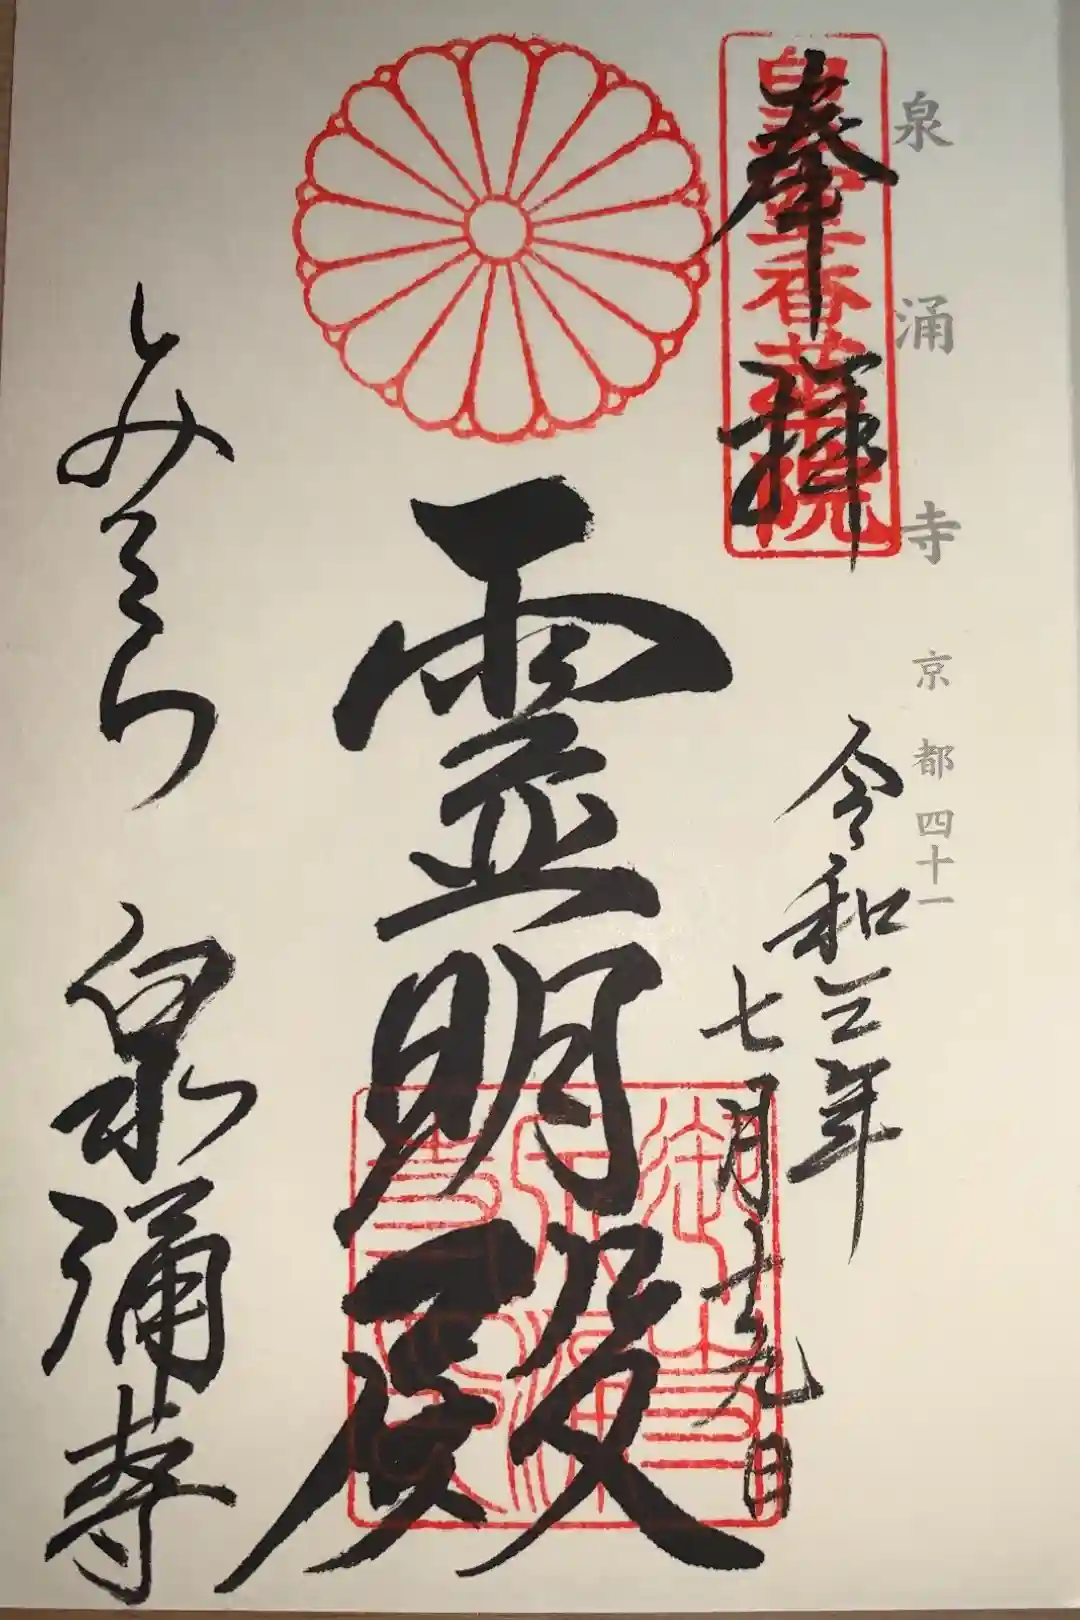 泉涌寺 京都四十一
奉拝
皇室香華院
令和三年
七月十九日
霊明殿
みてら 泉涌寺